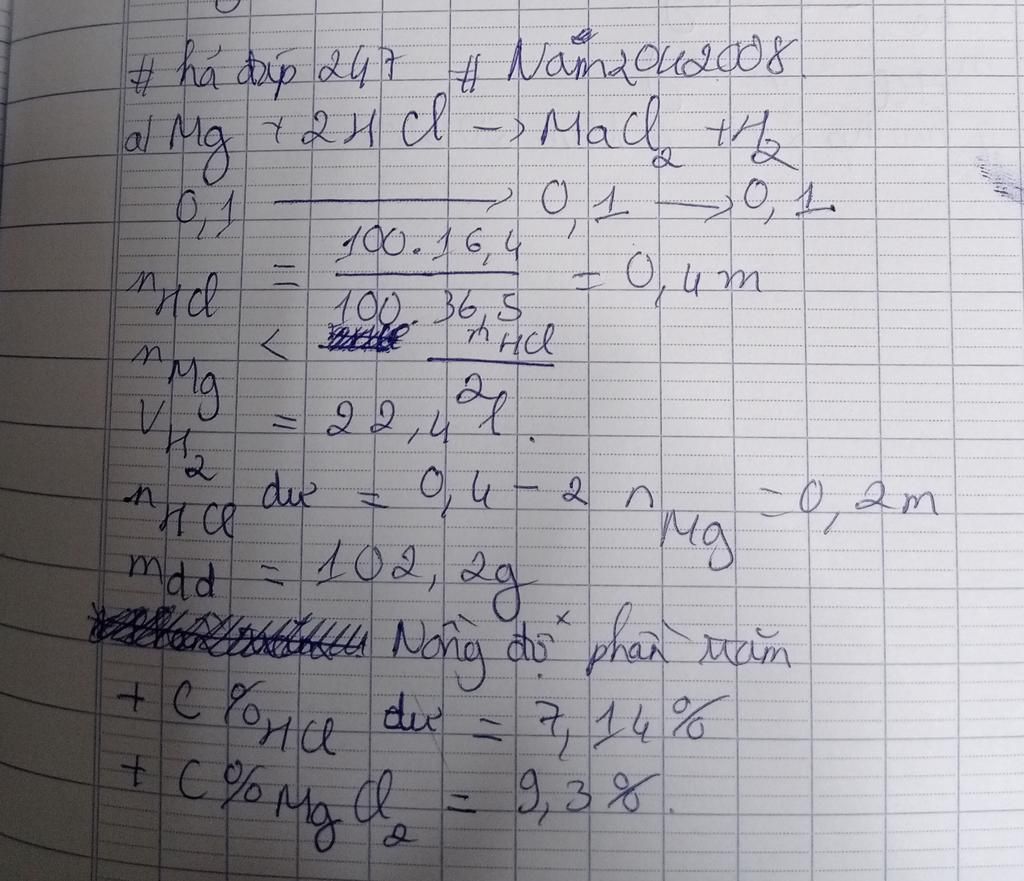 # há đáp 247 # Năm2042008
a/ Mg + 2HCl -> MaCl2 + H2
0,1 -> 0,1 -> 0,1
nHCl = 100.16,4 / 100.36,5 = 0,4m
nMg < nHCl / 2
VH2 = 22,4l.
nHCl dư = 0,4 - 2 nMg = 0,2m
mdd = 102,2g
Nồng độ phần trăm
+ C%HCl dư = 7,14%
+ C%MgCl2 = 9,3%.